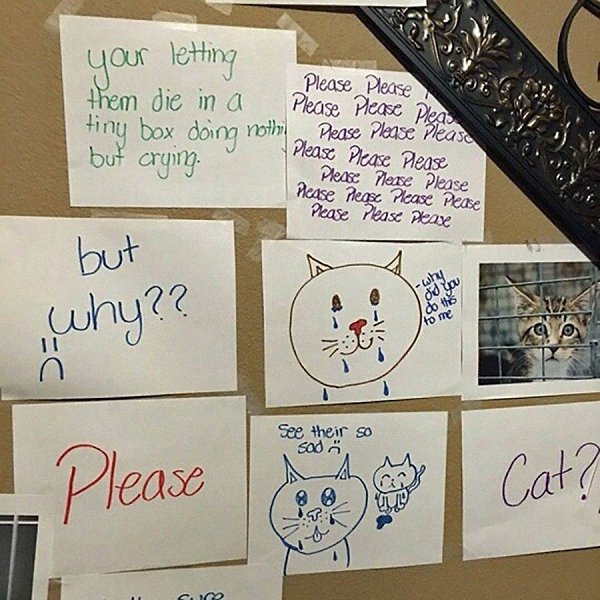 your letting
them die in a
tiny box doing
but crying.
Please Please
Please Please Please
Please Please Please
Please Please Please
Please Please Please
Please Please Please Please
Please Please Please
but
why??
:(
why
did you
do this
to me
Please
See their so
sad :(
Cat?